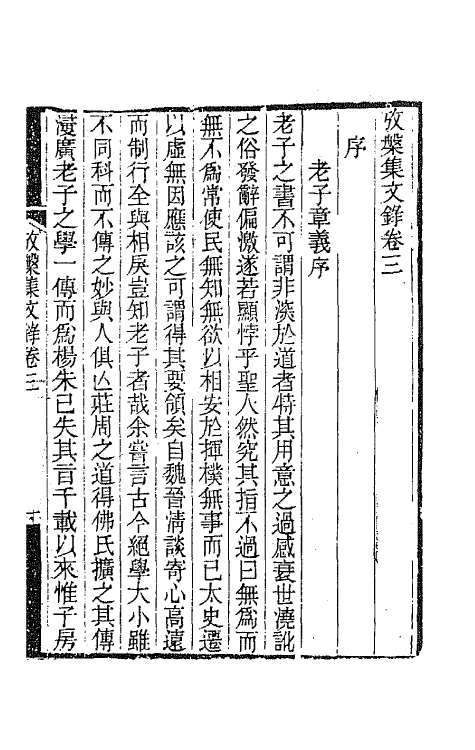 攷槃集文錄卷三
序
老子章義序
老子之書不可謂非深於道者特其用意之過感衰世澆訛
之俗發辭偏激遂若顯悖乎聖人然究其指不過曰無爲而
無不爲常使民無知無欲以相安於揮樸無事而已太史遷
以虛無因應該之可謂得其要領矣自魏晉清談寄心高遠
而制行全與相戾豈知老子者哉余嘗言古今絕學大小雖
不同科而不傳之妙與人俱亾莊周之道得佛氏擴之其傳
寖廣老子之學一傳而爲楊朱已失其眞千載以來惟子房
攷槃集文錄卷三